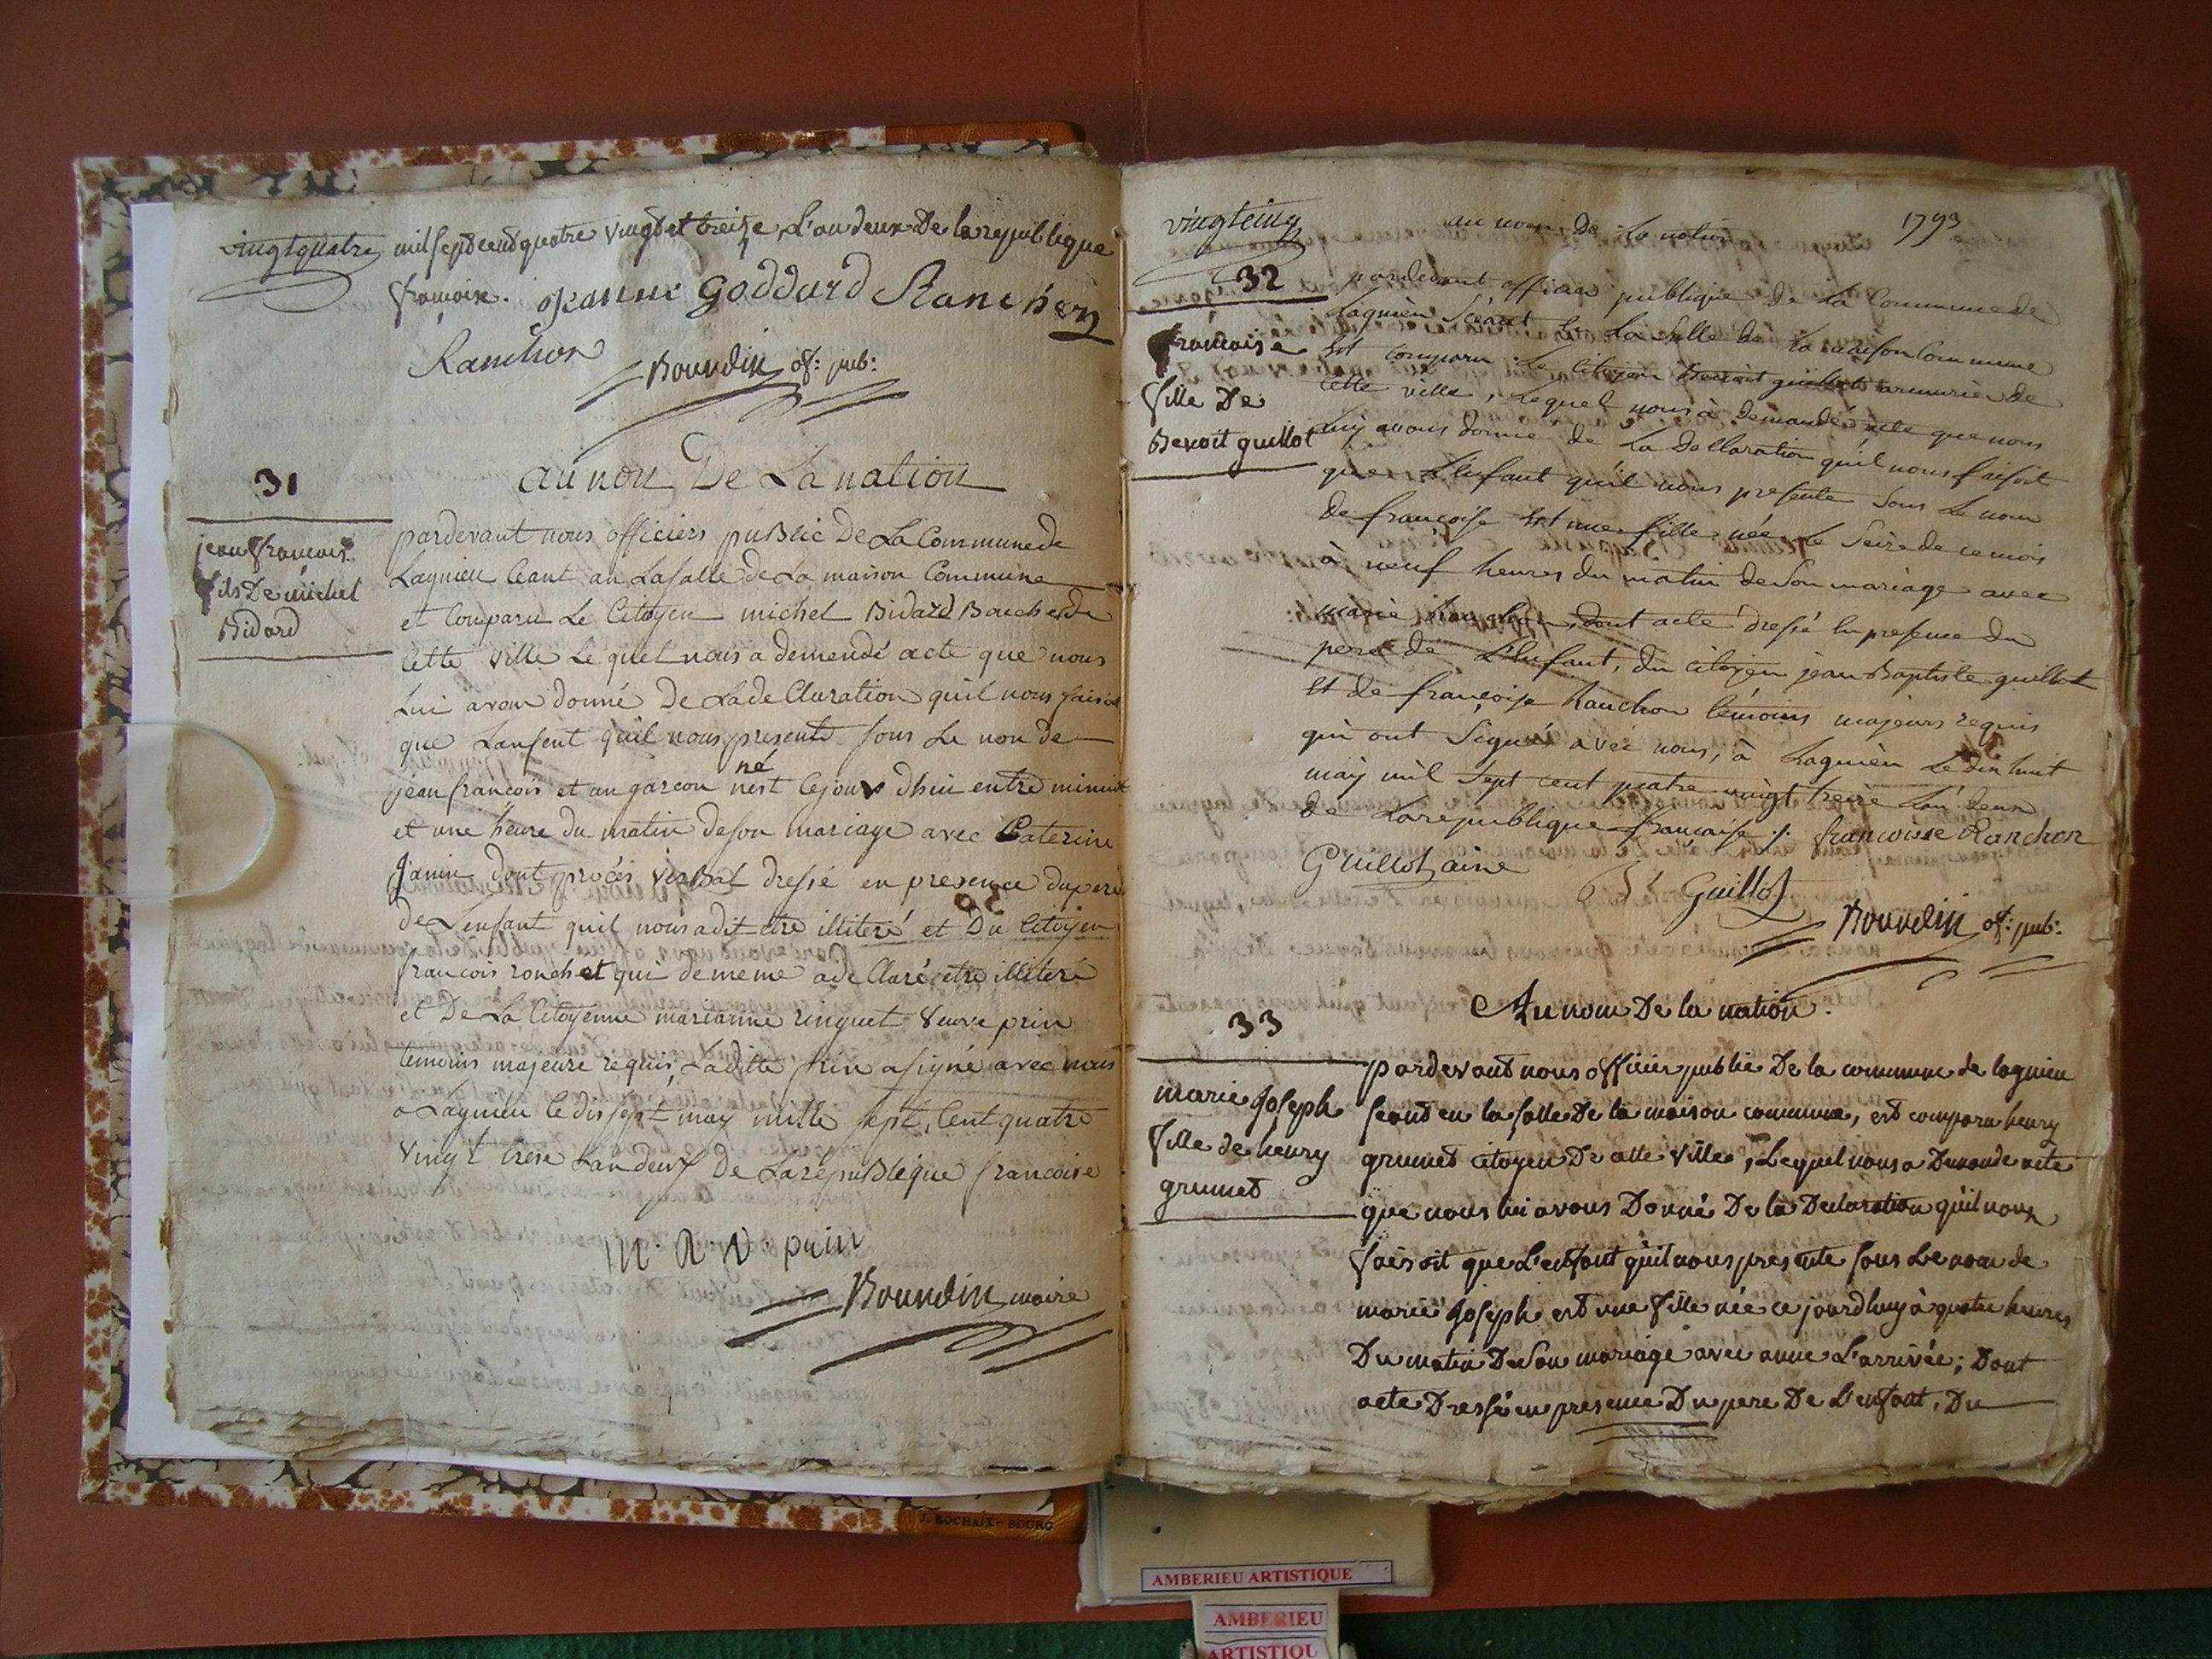 vingtquatre
mil sept cend quatre vingt et treize, L'an deux De la republique
francoise. Jeanne Goddard Ranchon
Ranchon
Bourdin of: pub:
31
au non De La nation
jean francois
fils De michel
Bidard
pardevant nous officiers puBlic De La Commune de
Lagnieu Ceant an La salle de La maison Commune
et Comparu Le Citoyen michel Bidard Boucher de
Cette ville Le quel nous a demendé acte que nous
Lui avon donné De La de Claration quil nous faisoit
que Lanfent quil nous presente sous Le non de
jean francois et un garcon né
nest Ce jour dhui entre minuit
et une heure du matin de son mariage avec Caterine
Janin dont procés verBal dressé en presence du pere
de Lenfant quil nous a dit etre illiteré et Du Citoyen
francois ronchet qui de meme a de Claré etre illiteré
et De La Citoyenne marianne ringuet veuve prin
temoins majeure requis, Laditte prin a signé avec nous
a Lagnieu Le dissept may mille sept Cent quatre
vingt trese Lan deux De La répuBlique francoise
m. R. V. prin
Bourdin maire
vingtcinq
au nom De La nation
1793
32
francoise
fille De
Benoit guillot
pardevant officier publique De La Commune de
Lagnieu Séant En La Salle de La maison Commune
Est comparu Le Citoyen Benoit guillot armurier de
cette ville, Lequel nous à demandé acte que nous
Luy avons donné de La Declaration qu'il nous faisoit
que L'Enfant qu'il nous presente sous Le nom
de françoise Est une fille née Le Seize de ce mois
à neuf heures du matin de Son mariage avec
marie Ranchon, dont acte dressé En presence du
pere de L'Enfant, du citoyen jean Baptiste guillot
Et de françoise Ranchon témoins majeurs requis
qui ont Signés avec nous, à Lagnieu Le dix huit
may mil Sept cent quatre vingt treize L'an deux
de La republique française ./. francoise Ranchon
Guillot ainé
Guillot
Bourdin of: pub:
Au nom De la nation.
33
marie Joseph
fille de henry
grumet
pardevant nous officier public De la commune de lagnieu
seant en la salle De la maison commune, est comparu henry
grumet citoyen De cette ville, Lequel nous a Demandé acte
que nous lui avons Donné De la Declaration qu'il nous
faisoit que L'enfant qu'il nous presente sous Le nom de
marie Joseph est une fille née ce jourdhuy à quatre heures
Du matin De Son mariage avec anne L'arrivée; Dont
acte Dressé en presence Du pere De L'enfant, Du
J. ROCHAIX - BOURG
AMBERIEU ARTISTIQUE
AMBERIEU
ARTISTIQU